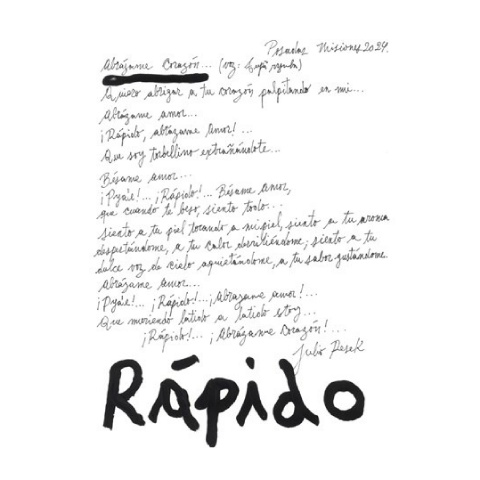 Posadas Misiones 2024.
Abrázame Corazón... (voz:
Quiero abrigar a tu corazón palpitando en mi...
Abrázame amor...
¡Rápido, abrázame Amor!...
Que soy torbellino extrañándote...
Bésame amor...
¡Pya'e!... ¡Rápido!... Bésame Amor,
que cuando te beso, siento todo...
siento a tu piel tocando a mi piel, siento a tu aroma
despertándome, a tu calor derritiéndome, siento a tu
dulce voz de cielo aquietándome, a tu sabor gustándome.
Abrázame amor...
¡Pya'e!... ¡Rápido!... ¡Abrazame amor!...
Que muriendo latido a latido estoy...
¡Rápido!... ¡Abrázame Corazón!...
Julio Pesek
Rápido